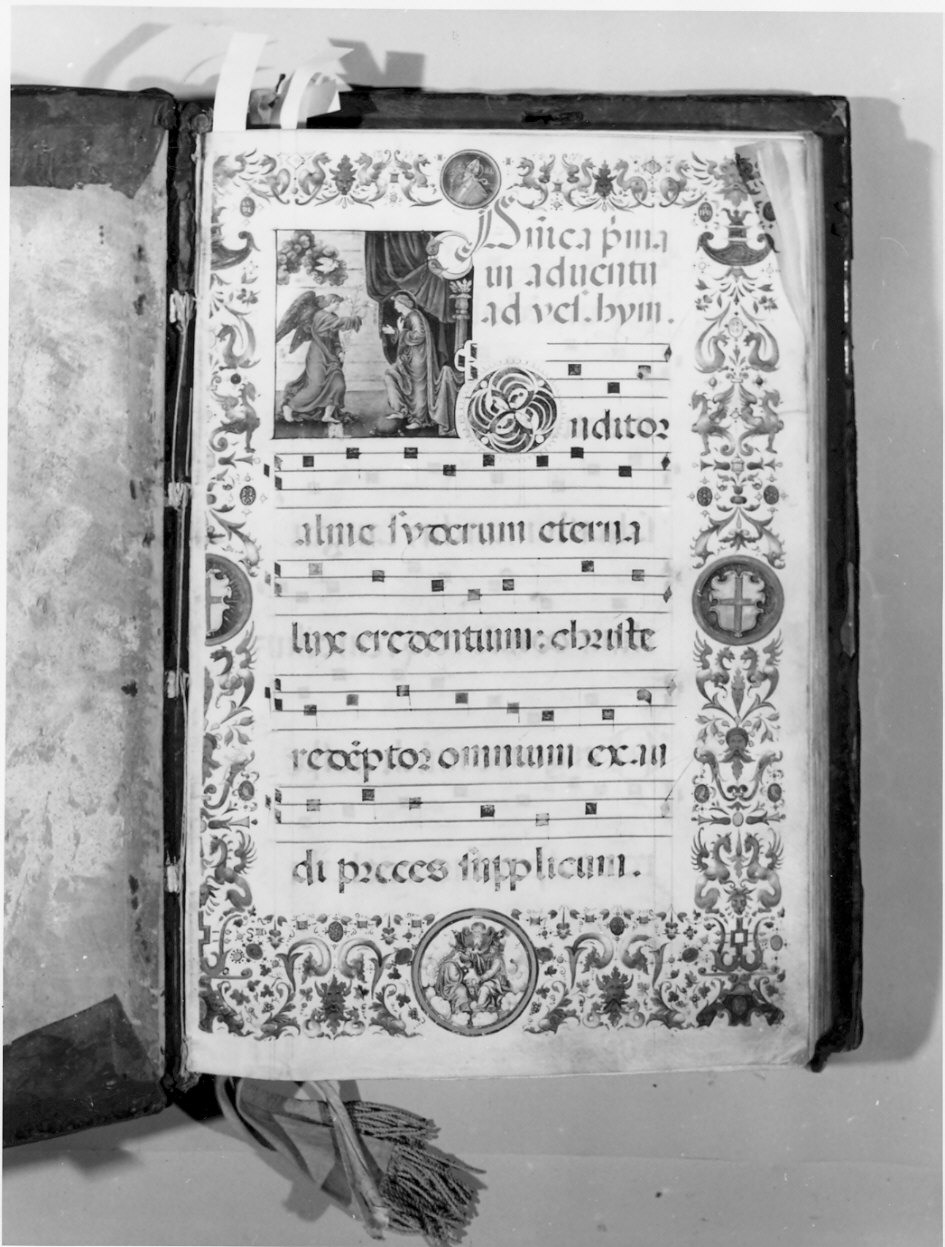 Dñica pͥma
in aduentu
ad vesꝭ. hym.
Conditor
alme syderum eterna
lux credentium: christe
redẽptor omnium exau
di preces supplicum.